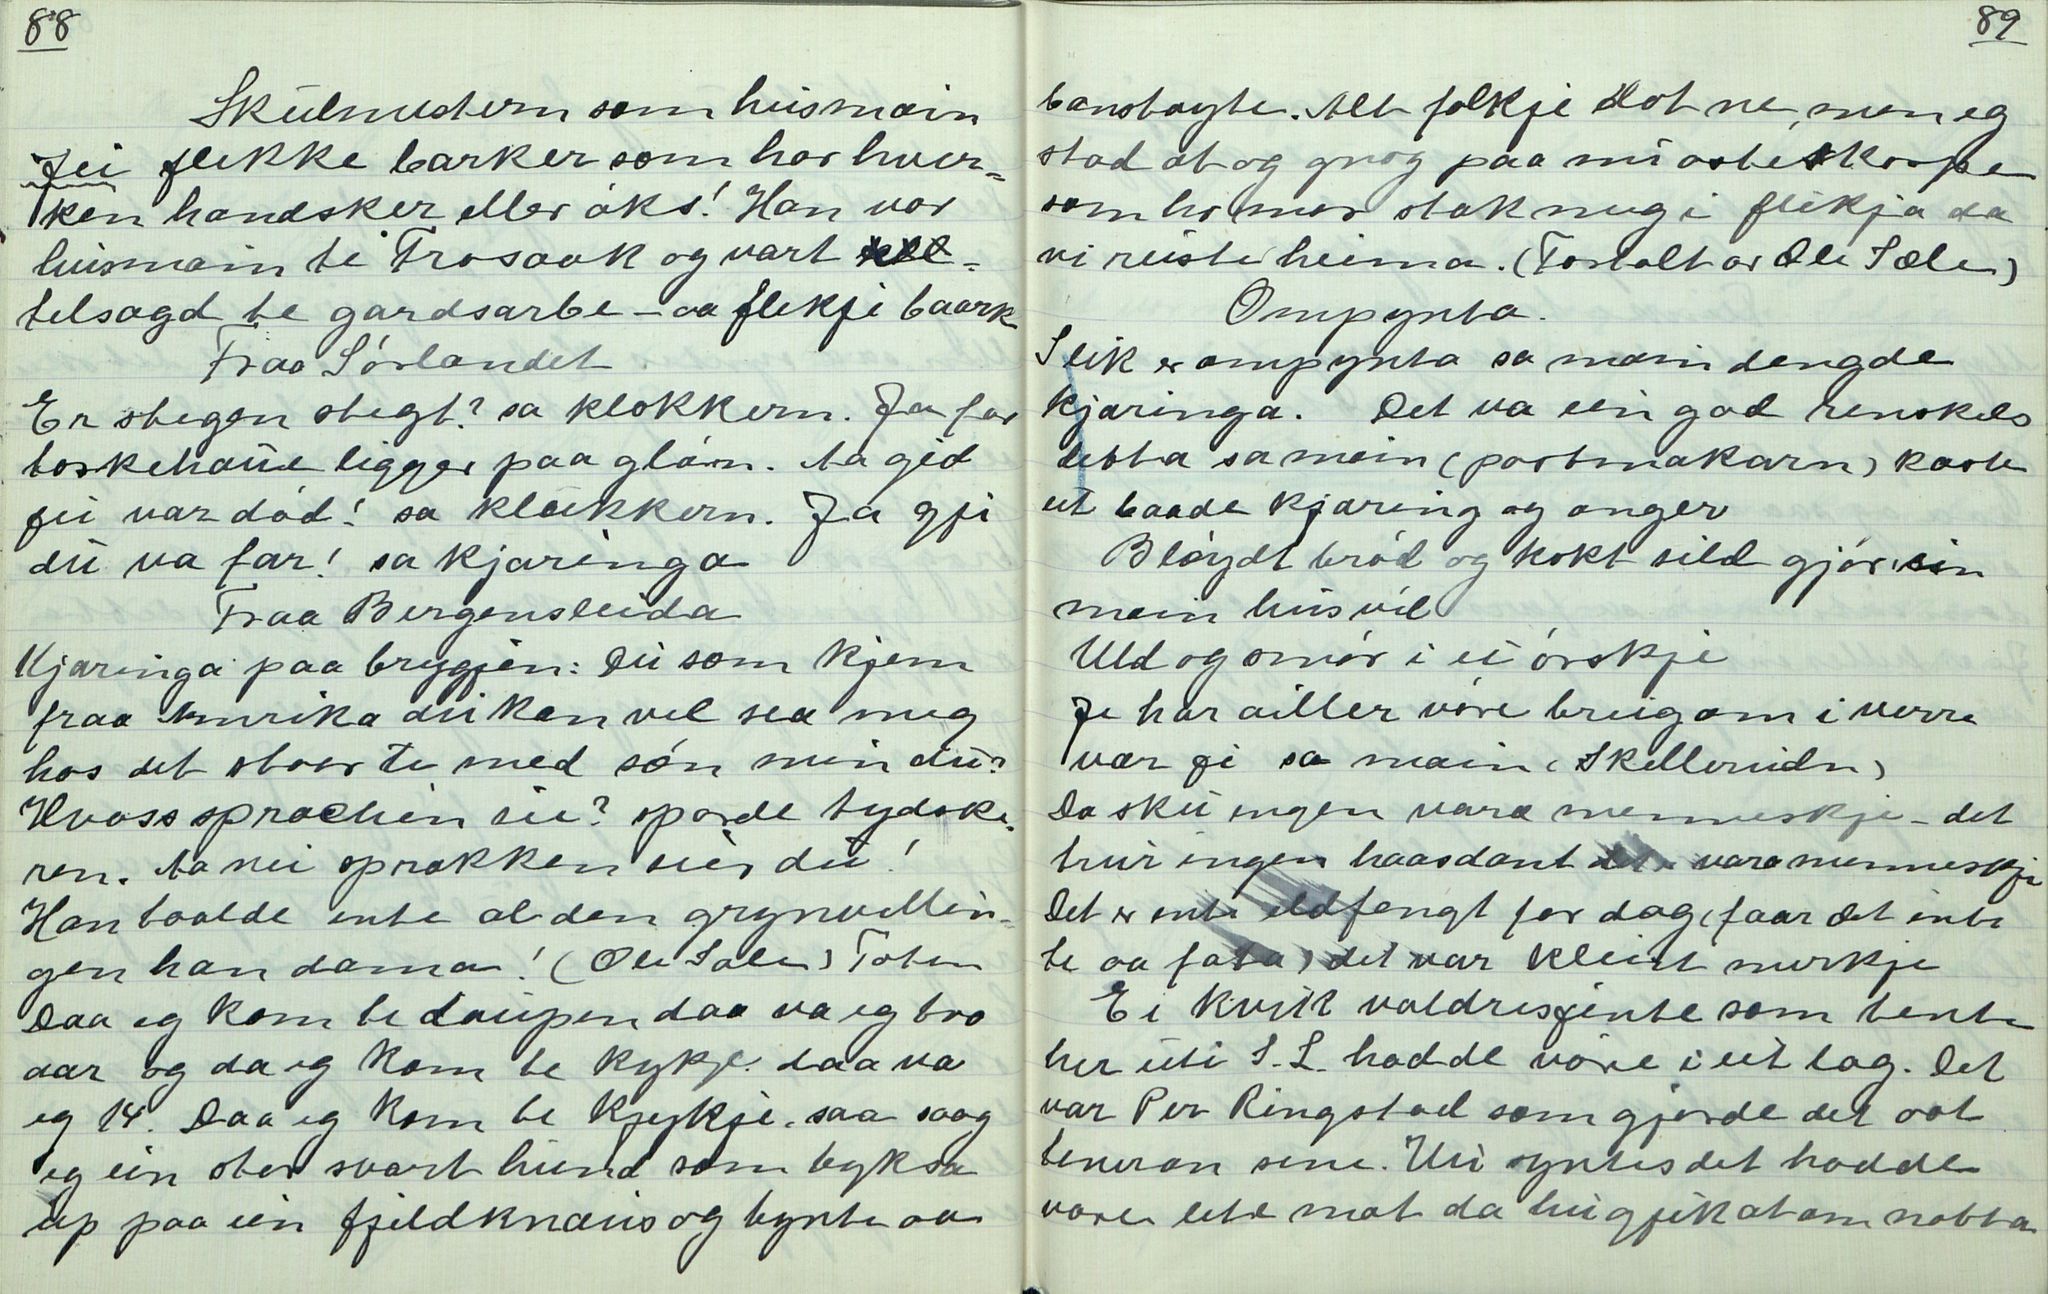 88
Skulmestern som husmain
Jei flekke barker som har hver-
ken handsker eller øks! Han var
husmain te Frosaak og vart
telsagd te gardsarbe - aa flekje baark
Fraa Sørlandet
Er stegen stegt? sa klokkern. Ja far
torskehaue ligger paa glørn. Aa gid
jei var død! sa klokkern. Ja gji
du va far! sa kjæringa
Fraa Bergensleida
Kjæringa paa brygjen: Du som kjem
fraa Amerika du kan vel sea meg
hos det stoer te med søn min du?
Hvass sprachen sie? sporde tydske-
ren. Aa nei sprakken sier du!
Han taalde ente al den grynvellin-
gen han damn! (Ole Sæle) Toten
Daa eg kom te daupen daa va eg tvo
aar og da eg kom te kykje daa va
eg 14. Daa eg kom te kjykje, saa saag
eg ein stor svart hund som byksa
up paa ein fjeldknaus og bynte aa
89
banstøyte. Alt folkje flot ne, men eg
stod at og gnog paa mi osteskorpe
som ho mor stak meg i flikja da
vi reiste heima. (Fortalt av Ole Sæle)
Ompynta.
Slik er ompynta sa main dengde
kjæringa. Det va ein god renskels
detta sa main (portmakarn) kaste
ut baade kjæring og onger
Bløydt brød og kokt sild gjør sin
main husvil
Uld og smør i ei ørskje
Je har ailler vøre brugom i verre
vær je sa main (Skellerudn)
Da sku ingen vara menneskje - det
trur ingen haasdant vara menneskje
Det er ente eldfengt for dag, (faar det inte
te aa fata) det var kleint nerkje
Ei kvik valdresjente som tente
her uti S. L. hadde vøre i eit lag. Det
var Per Ringstad som gjorde det aat
teneran sine. Hu syntes det hadde
vore lite mat da hu gjik at om natta